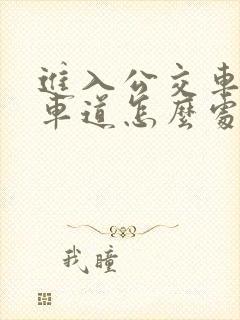 進入公交車
車道怎麼處
我瞳